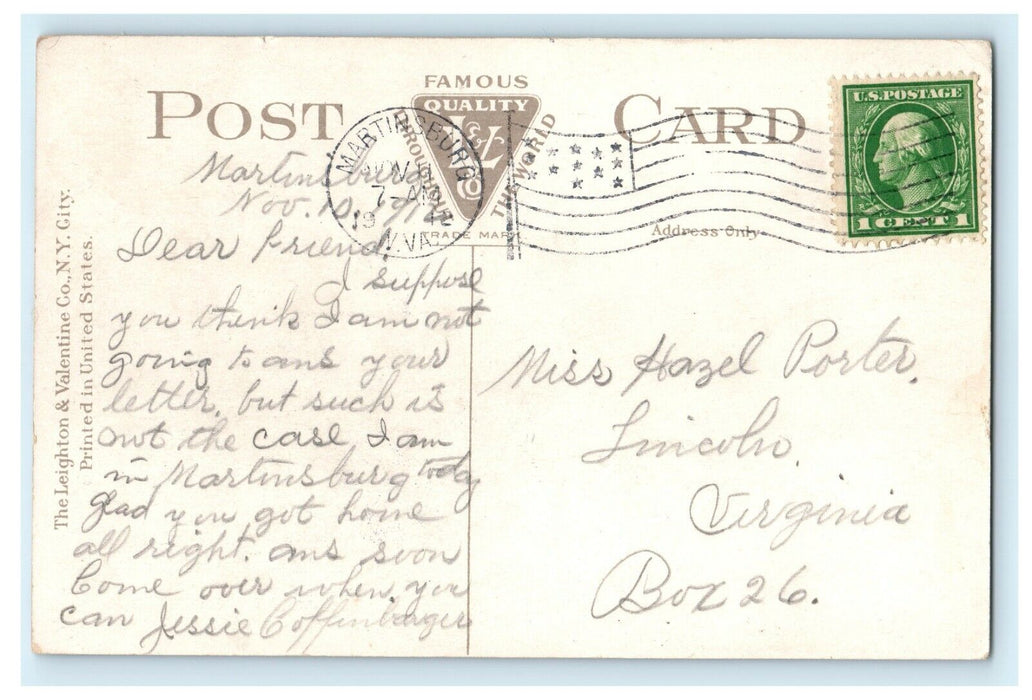 POST CARD
FAMOUS
QUALITY
L&V
CO
THROUGHOUT
THE WORLD
TRADE MARK
MARTINSBURG
NOV
7-AM
19
W.VA.
U.S. POSTAGE
1 CENT 1
Address Only
The Leighton & Valentine Co., N.Y. City.
Printed in United States.
Martinsburg
Nov. 10,
Dear Friend,
I suppose
you think I am not
going to ans your
letter, but such is
not the case, I am
in Martinsburg today
glad you got home
all right. ans soon
Come over when you
can Jessie Coffinbarger
Miss Hazel Porter,
Lincoln
Virginia
Box 26.